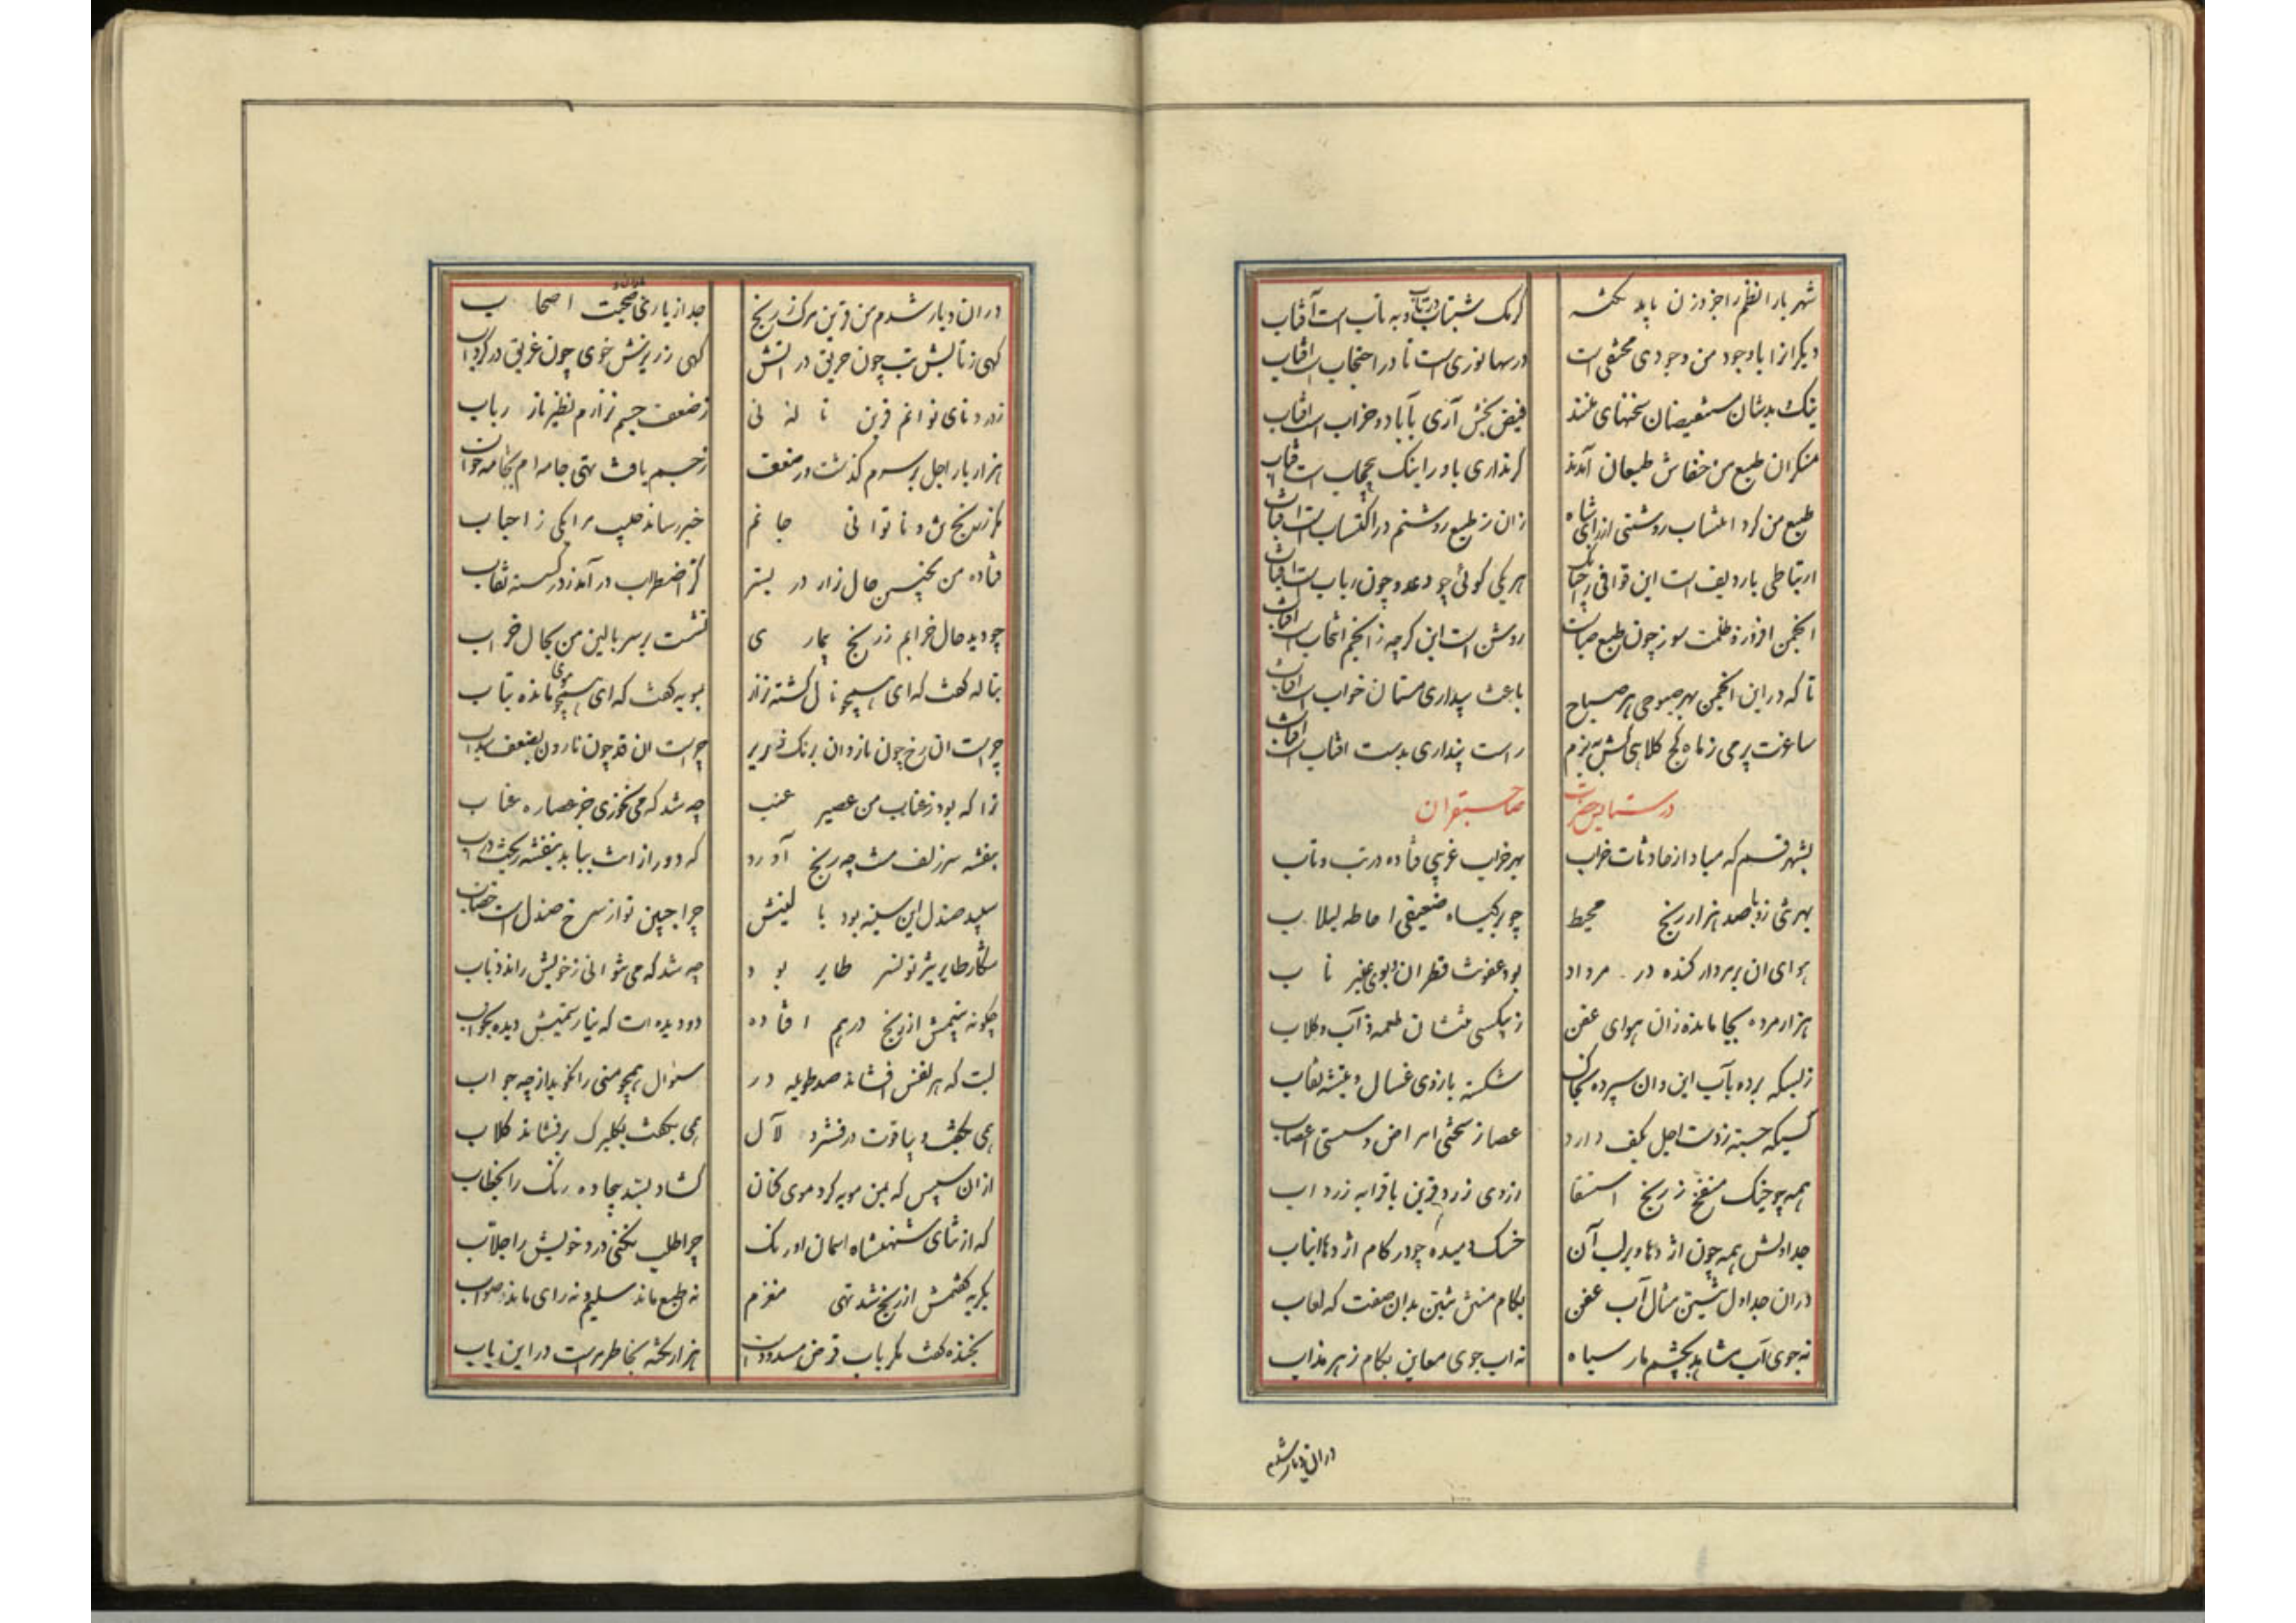 شهر یارا نظم را جز وزن باید نکته کرنک شبتاب و به تاب است آفتاب
دیگر از ابا وجود من وجودی مختفی است در سها نوری است تا در احتجاب است افتاب
بدنشان مستفیضان سخنهای منند فیض بخش آری بآباد و خراب است افتاب
منکران طبع من خفاش طبعان آمدند کر نداری باور اینک بیحجاب است افتاب
طبع من کرد اکتساب روشنی از رای شاه زان ز طبع روشنم در اکتساب است افتاب
ارتباطی با ردیف است این قوافی را چنانک هر یکی کوئی چو دعد و چون رباب است افتاب
انجمن افروز و ظلمت سوز چون طبع حیات روشن است این کرچه ز انجم انتخاب است افتاب
تا که در این انجمن بهر صبوحی هر صباح باعث بیداری مستان خواب است افتاب
ساغرت پر می ز ماه کج کلاهی کش ببزم راست پنداری بدست افتاب است افتاب
در ستایش حضرت صاحبقران
بشهر قم که مباد از حادثات خراب بهر خراب غریبی فتاده در تب و تاب
بهر تنی ز وبا صد هزار رنج محیط چو بر کیاه ضعیفی احاطه لبلاب
هوای ان بر مردار کنده در مرداد بود عفونت قطران و بوی عنبر ناب
هزار مرده بجا مانده زان هوای عفن ز بیکسی نتشان طعمه ذآب و کلاب
ز بسکه برده بآب این و ان سپرده بخاک شکسته بازوی غسال و تیشه نقاب
کسیکه جسته ز دست اجل بکف دارد عصا ز سختی امراض و سستی اعصاب
همه چو خیک منفخ ز رنج استسقا ز روی زرد قرین با قرابه زرداب
جداولش همه چون اژدها و بر لب آن خسک دمیده چو در کام اژدها انیاب
دران جداول شین مثال آب عفن بکام منتن تنین بدان صفت که لعاب
نه جوی آب مشاهد بچشم مار سیاه نه اب جوی معاین بکام زهر مذاب
دران دیار شدم
دران دیار شدم من قرین مرک ز رنج جدا ز یاری صحبت اصحاب
کهی ز تابش تب چون حریق در اتش کهی ز ریزش خوی چون غریق در کرداب
ز درد نای توانم قرین ناله نی ز ضعف جسم نزارم نظیر تار رباب
هزار بار اجل بر سرم کذشت و ز ضعف ز جسم یافت تهی جامه ام بجامه خواب
مکر ز رنج تن و ناتوانی جانم خبر رساند حبیب مرا یکی ز احباب
فتاده من بچنین حال زار در بستر کز اضطراب در آمد ز در کسسته نقاب
چو دید حال خرابم ز رنج بیماری نشست بر سر بالین من بحال خراب
بناله کفت که ای همچو نال کشته نزار بمویه کفت که ای همچو موی مانده بتاب
چراست ان رخ چون ناردان برنک زریر چراست ان قد چون نارون بضعف سداب
ترا که بود ز عناب من عصیر عنب چه شد که می نخوری جز عصاره عناب
بنفشه سر زلفت چه رنج آورد که دور از ات بباید بنفشه ریخت در اب
سپید صندل این سینه بود بالینش چرا جبین تو از سرخ صندل است خضاب
شکار طایر تیر تو نسر طایر بود چه شد که می نتوانی ز خویش راند ذباب
چکونه بینمش از رنج درهم افتاده دو دیده ات که نیارستمیش دیده بخواب
لبت که هر نفس افشاند صد طویله در سئوال همچو منی را نکوید از چه جواب
همی بکفت و بیاقوت در فشرد لآل همی بکفت بکلبرک بر فشاند کلاب
ازان سپس که بمن مویه کرد موی کنان کشاد بسته بیجاده رنک را بخطاب
که از ثنای شهنشاه اسمان اورنک چرا طلب نکنی درد خویش را جلاب
بکریه کفتمش از رنج شد تهی مغزم نه طبع ماند سلیم و نه رای ماند صواب
بخنده کفت مکر باب قرض مسدود است هزار نکته بخاطر مراست در این باب